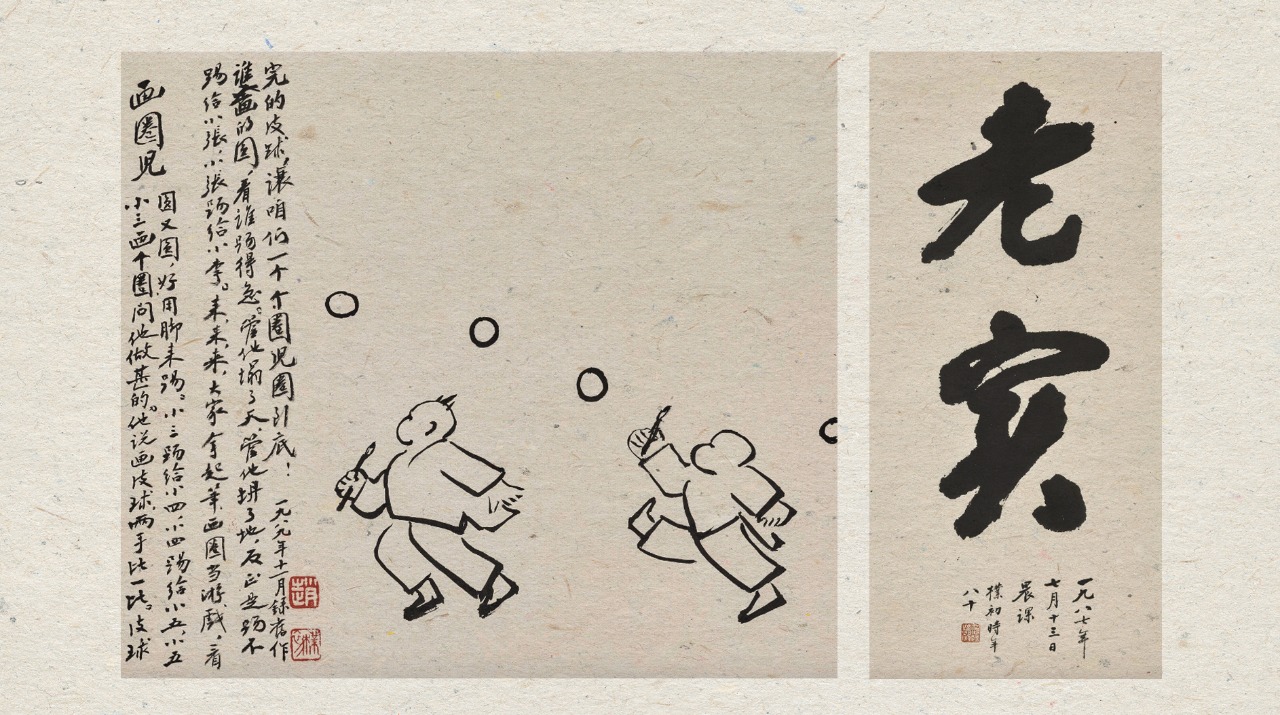 画圈児
小三画个圈问他做甚的。他说画皮球。两手比一比。皮球
圆又圆,好用脚来踢。小三踢给小四,小四踢给小五,小五
踢给小張,小張踢给小李。来来来,大家拿起笔画圈当游戲,看
谁画的圆,看谁踢得急。管他塌了天,管他坍了地,反正是踢不
完的皮球,讓咱们一个个圈児圈到底!
一九八九年十一月録舊作
趙
樸初
老实
一九八七年
七月十三日
晨课
樸初時年
八十